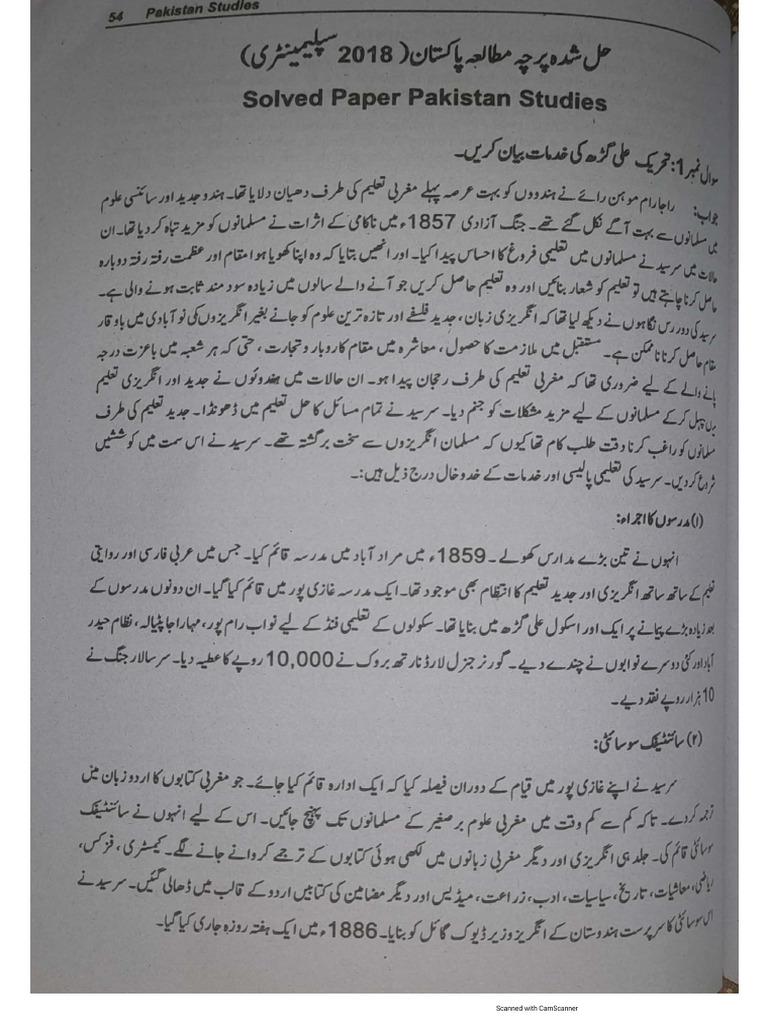 54 Pakistan Studies
حل شدہ پرچہ مطالعہ پاکستان (2018 سپلیمینٹری)
Solved Paper Pakistan Studies
سوال نمبر 1: تحریک علی گڑھ کی خدمات بیان کریں۔
جواب: راجارام موہن رائے نے ہندووں کو بہت عرصہ پہلے مغربی تعلیم کی طرف دھیان دلایا تھا۔ ہندو جدید اور سائنسی علوم
میں مسلمانوں سے بہت آگے نکل گئے تھے۔ جنگ آزادی 1857ء میں ناکامی کے اثرات نے مسلمانوں کو مزید تباہ کر دیا تھا۔ ان
حالات میں سرسید نے مسلمانوں میں تعلیمی فروغ کا احساس پیدا کیا۔ اور انھیں بتایا کہ وہ اپنا کھویا ہوا مقام اور عظمت رفتہ رفتہ دوبارہ
حاصل کرنا چاہتے ہیں تو تعلیم کو شعار بنائیں اور وہ تعلیم حاصل کریں جو آنے والے سالوں میں زیادہ سود مند ثابت ہونے والی ہے۔
سرسید کی دور رس نگاہوں نے دیکھ لیا تھا کہ انگریزی زبان، جدید فلسفے اور تازہ ترین علوم کو جانے بغیر انگریزوں کی نو آبادی میں باوقار
مقام حاصل کرنا ناممکن ہے۔ مستقبل میں ملازمت کا حصول، معاشرہ میں مقام کاروبار و تجارت، حتی کہ ہر شعبہ میں باعزت درجہ
پانے والے کے لیے ضروری تھا کہ مغربی تعلیم کی طرف رجحان پیدا ہو۔ ان حالات میں ہندوئوں نے جدید اور انگریزی تعلیم
میں پہل کر کے مسلمانوں کے لیے مزید مشکلات کو جنم دیا۔ سرسید نے تمام مسائل کا حل تعلیم میں ڈھونڈا۔ جدید تعلیم کی طرف
مسلمانوں کو راغب کرنا دقت طلب کام تھا کیوں کہ مسلمان انگریزوں سے سخت برگشتہ تھے۔ سرسید نے اس سمت میں کوششیں
شروع کر دیں۔ سرسید کی تعلیمی پالیسی اور خدمات کے خدوخال درج ذیل ہیں:۔
(۱) مدرسوں کا اجراء:
انہوں نے تین بڑے مدارس کھولے۔ 1859ء میں مراد آباد میں مدرسہ قائم کیا۔ جس میں عربی فارسی اور روایتی
تعلیم کے ساتھ ساتھ انگریزی اور جدید تعلیم کا انتظام بھی موجود تھا۔ ایک مدرسہ غازی پور میں قائم کیا گیا۔ ان دونوں مدرسوں کے
بعد زیادہ بڑے پیمانے پر ایک اور اسکول علی گڑھ میں بنایا تھا۔ سکولوں کے تعلیمی فنڈ کے لیے نواب رام پور، مہاراجا پٹیالہ، نظام حیدر
آباد اور کئی دوسرے نوابوں نے چندے دیے۔ گورنر جنرل لارڈ نارتھ بروک نے 10,000 روپے کا عطیہ دیا۔ سر سالار جنگ نے
10 ہزار روپے نقد دیے۔
(۲) سائنٹیفک سوسائٹی:
سرسید نے اپنے غازی پور میں قیام کے دوران فیصلہ کیا کہ ایک ادارہ قائم کیا جائے۔ جو مغربی کتابوں کا اردو زبان میں
ترجمہ کر دے۔ تاکہ کم سے کم وقت میں مغربی علوم برصغیر کے مسلمانوں تک پہنچ جائیں۔ اس کے لیے انہوں نے سائنٹیفک
سوسائٹی قائم کی۔ جلد ہی انگریزی اور دیگر مغربی زبانوں میں لکھی ہوئی کتابوں کے ترجمے کروانے جانے لگے۔ کیمسٹری، فزکس،
ریاضی، معاشیات، تاریخ، سیاسیات، ادب، زراعت، میڈیسن اور دیگر مضامین کی کتابیں اردو کے قالب میں ڈھالی گئیں۔ سرسید نے
اس سوسائٹی کا سرپرست ہندوستان کے انگریز وزیر ڈیوک گائل کو بنایا۔ 1886ء میں ایک ہفتہ روزہ جاری کیا گیا۔
Scanned with CamScanner